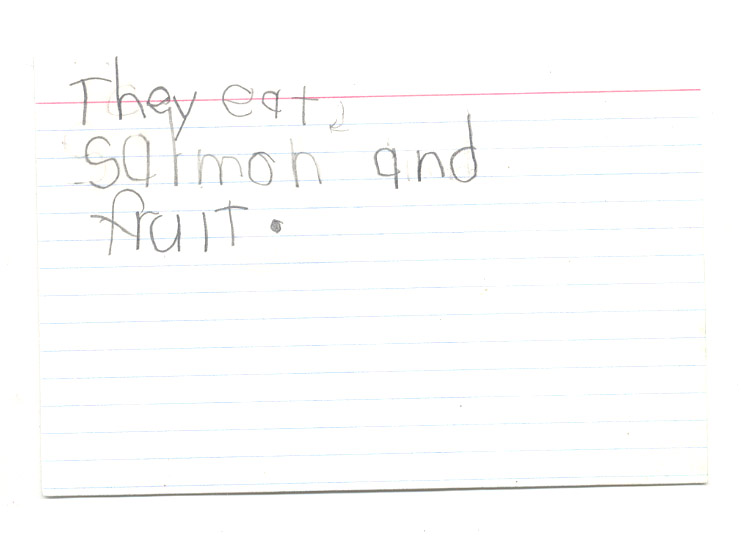 They eat
salmon and
fruit.